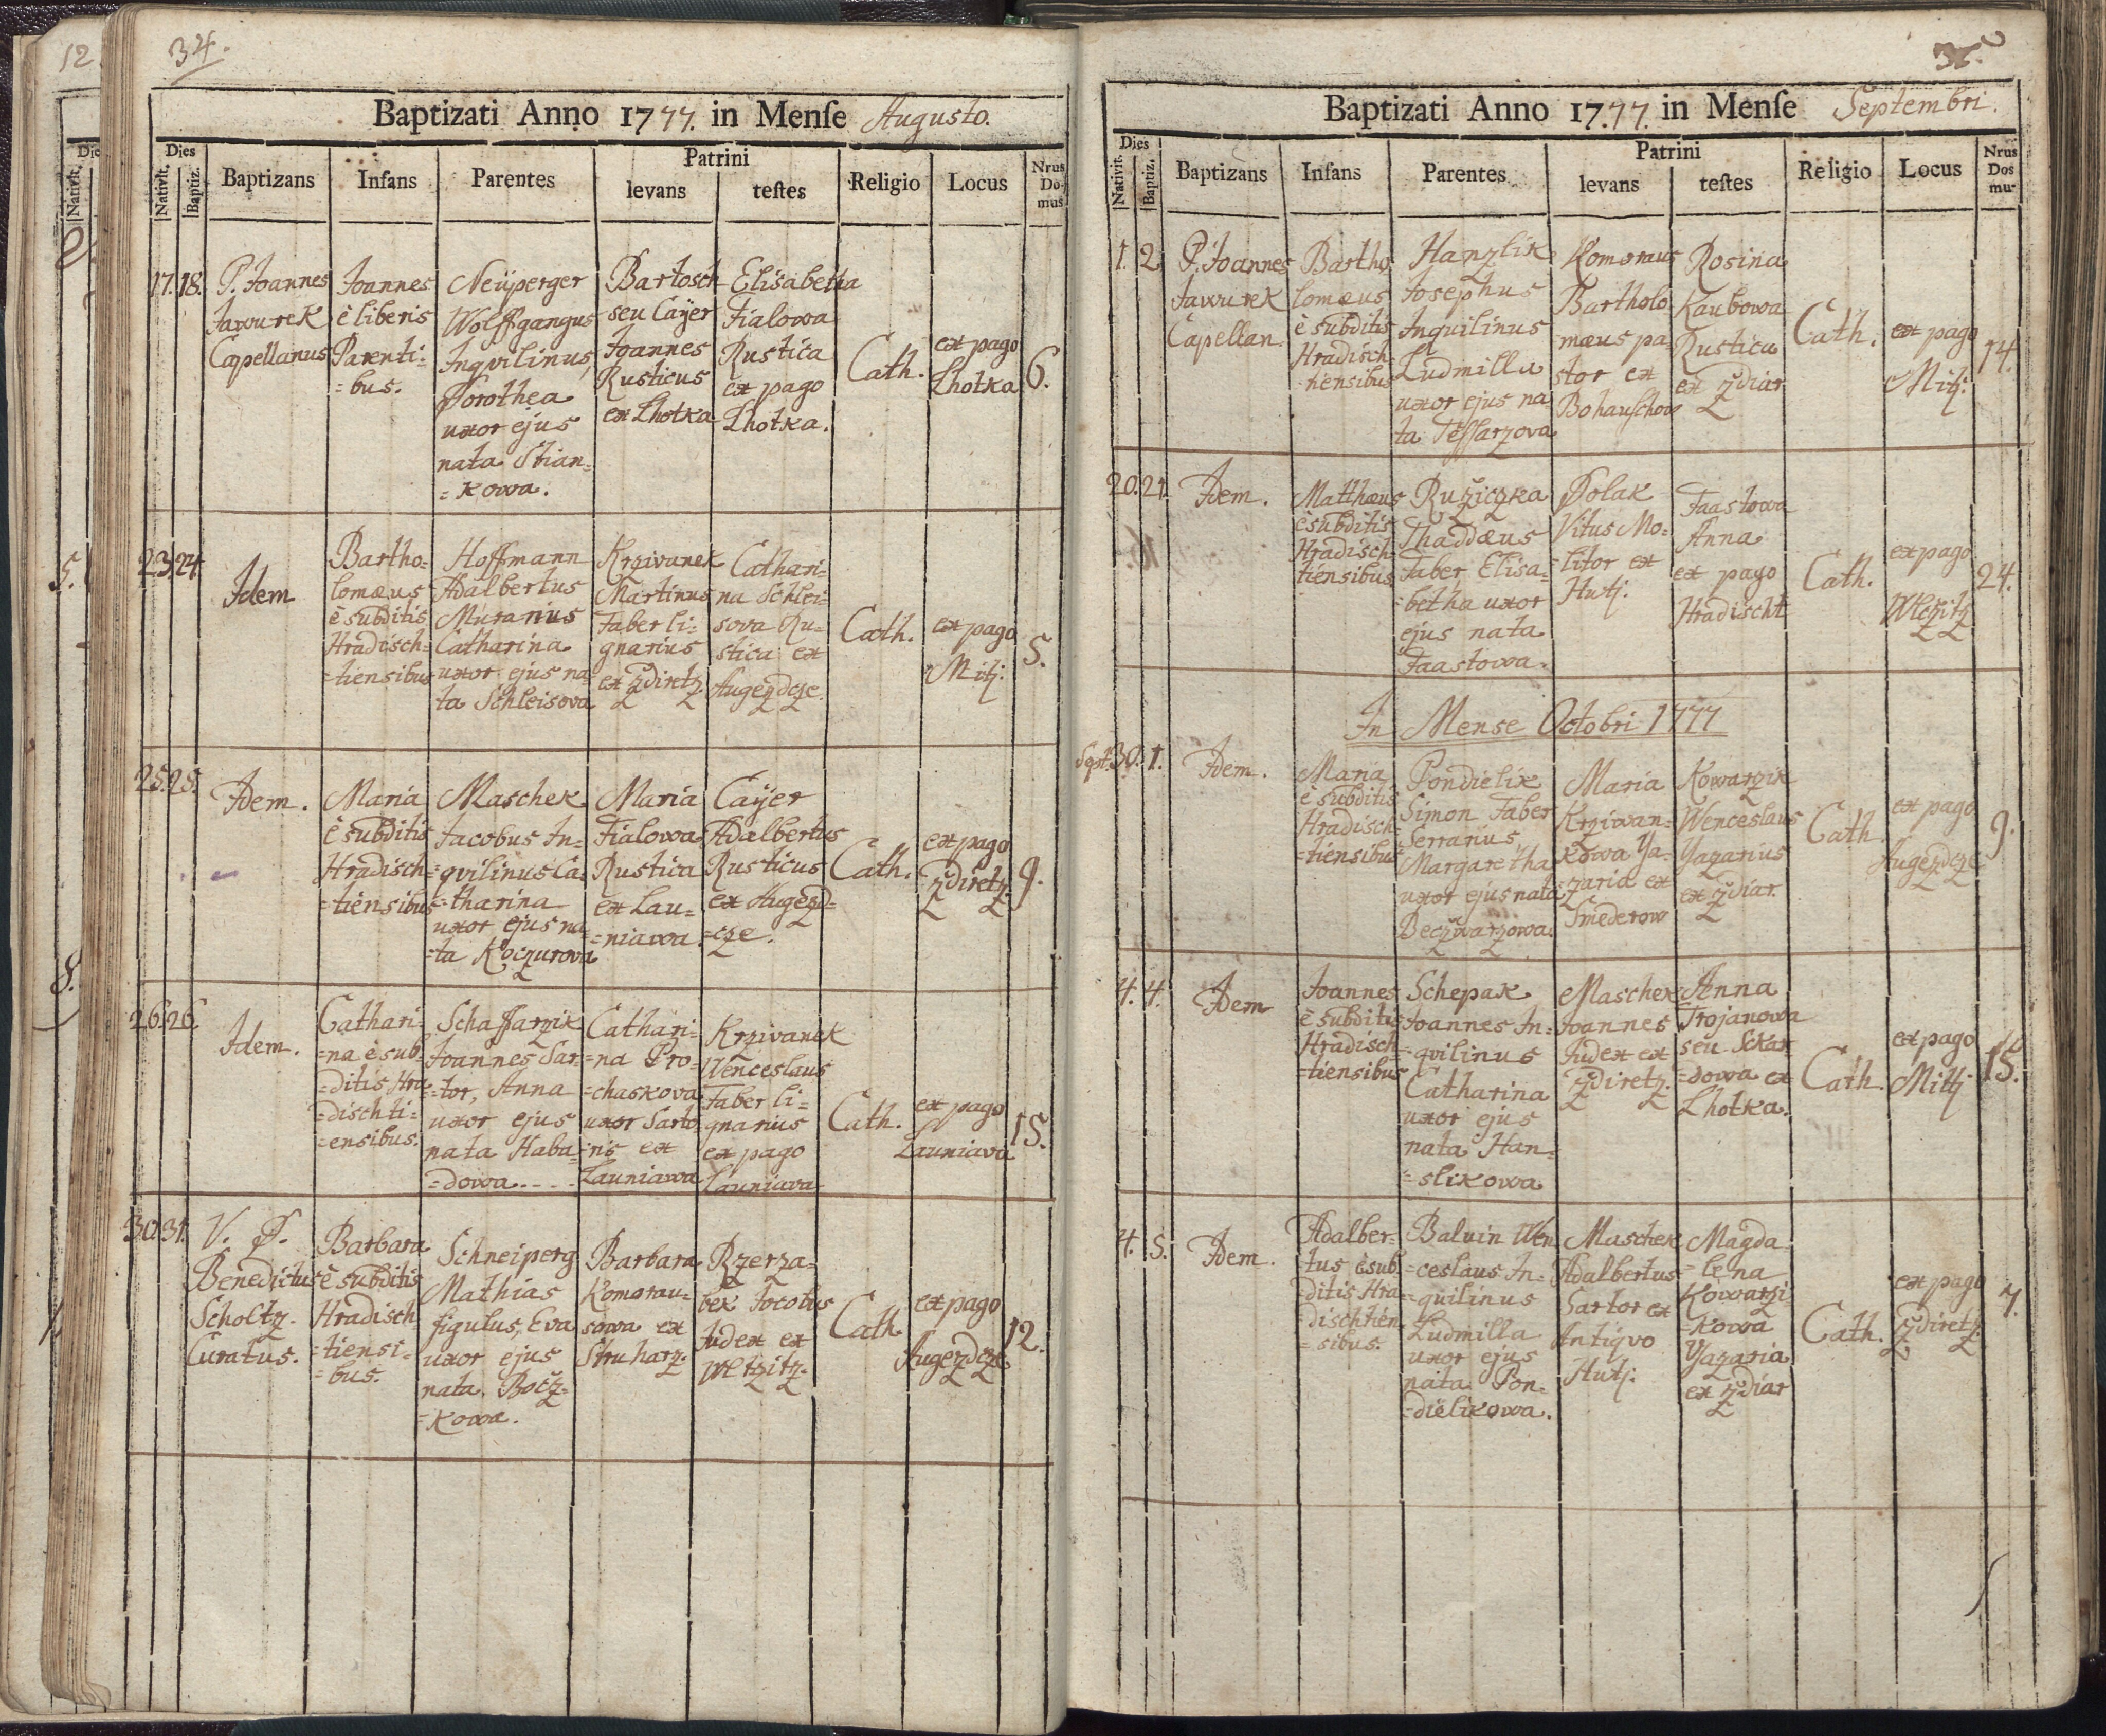 12.
34.
Baptizati Anno 1777. in Menſe Augusto.
Dies
Nativit.
Baptiz.
Baptizans
Infans
Parentes
Patrini
levans
teſtes
Religio
Locus
Nrus
Do-
mus
17. 18.
P. Joannes
Jawurek
Capellanus
Joannes
è liberis
Parenti-
=bus.
Neüperger
Wolffgangus
Inqvilinus,
Dorothea
uxor ejus
nata Stian=
=kowa.
Bartosch
seu Caÿer
Joannes
Rusticus
ex Lhotka
Elisabetha
Fialowa
Rustica
ex pago
Lhotka.
Cath.
ex pago
Lhotka
6.
23. 24.
Idem
Bartho=
lomæus
è subditis
Hradisch=
=tiensibus
Hoffmann
Adalbertus
Murarius
Catharina
uxor ejus na=
ta Schleisova
Krzivanek
Martinus
Faber li=
gnarius
ex Zdiretz
Cathari=
na Schlei=
sova Ru=
stica ex
Augezdcze.
Cath.
ex pago
Mitj.
5.
25. 25.
Idem.
Maria
è subditis
Hradisch=
=tiensibus
Maschek
Jacobus In=
=qvilinus Ca=
=tharina
uxor ejus na=
=ta Koczurova
Maria
Fialowa
Rustica
ex Lau=
=niawa
Caÿer
Adalbertus
Rusticus
ex Augezd=
=cze.
Cath.
ex pago
Zdiretz
9.
26. 26.
Idem.
Cathari=
=na è sub=
=ditis Hra=
=dischti=
=ensibus.
Schaffarzik
Joannes Sar=
=tor, Anna
uxor ejus
nata Haba=
=dowa....
Cathari=
=na Pro=
=chaskova
uxor Sarto
=ris ex
Launiawa
Krzivanek
Wenceslaus
Faber li=
gnarius
ex pago
Launiava
Cath.
ex pago
Launiava
15.
30. 31.
V. P.
Benedictus
Scholtz.
Curatus.
Barbara
è subditis
Hradisch
=tiensi=
=bus.
Schneiperg
Mathias
figulus, Eva
uxor ejus
nata Bočz=
=kowa.
Barbara
Komorau=
sowa ex
Struharz.
Rzerza=
bek Jocobus
Judex ex
Wltzitz.
Cath.
ex pago
Augezdcze
12.
Baptizati Anno 17.77. in Menſe Septembri.
Dies
Nativit.
Baptiz.
Baptizans
Infans
Parentes
Patrini
levans
teſtes
Religio
Locus
Nrus
Dos
mu-
1. 2.
P. Joannes
Jawurek
Capellan.
Bartho
lomæus
è subditis
Hradisch=
=tiensibus
Hanzlik
Josephus
Inquilinus
Ludmilla
uxor ejus na
ta Tessarzova
Komoraus
Bartholo
mæus pa=
stor ex
Bohauschow
Rosina
Kaubowa
Rustica
ex Zdiar
Cath.
ex pago
Mitj.
14.
20. 21.
Idem.
Matthæus
è subditis
Hradisch=
tiensibus
Ružiczka
Thaddæus
Faber Elisa=
=betha uxor
ejus nata
Faastowa.
Polak
Vitus Mo=
litor ex
Hutj.
Faastowa
Anna
ex pago
Hradischt
Cath.
ex pago
Wlčžitz
24.
In Mense Octobri 1777
Sept. 30. 1.
Idem.
Maria
è subditis
Hradisch=
=tiensibus
Pondielik
Simon Faber
Serrarius,
Margaretha
uxor ejus nata
Beczwarzowa.
Maria
Krziwan=
kowa Ya=
zaria ex
Smederow
Kowarzik
Wenceslaus
Yazarius
ex Zdiar.
Cath.
ex pago
Augezdcze
9.
4. 4.
Idem
Joannes
è subditis
Hradisch
=tiensibus
Schepak
Joannes In=
=qvilinus
Catharina
uxor ejus
nata Han=
=slikowa
Maschek
Joannes
Judex ex
Zdiretz.
Anna
Trojanowa
seu Skar
=dowa ex
Lhotka.
Cath.
ex pago
Mittj
15.
4. 5.
Idem.
Adalber=
=tus è sub=
=ditis Hra=
=dischtien=
=sibus.
Balvin Wen
=ceslaus In=
=quilinus
Ludmilla
uxor ejus
nata Pon=
=dielikowa.
Maschek
Adalbertus
Sartor ex
Antiqvo
Hutj.
Magda
=lena
Kowarzi
=kowa
Yazaria
ex Zdiar
Cath.
ex pago
Zdiretz.
7.